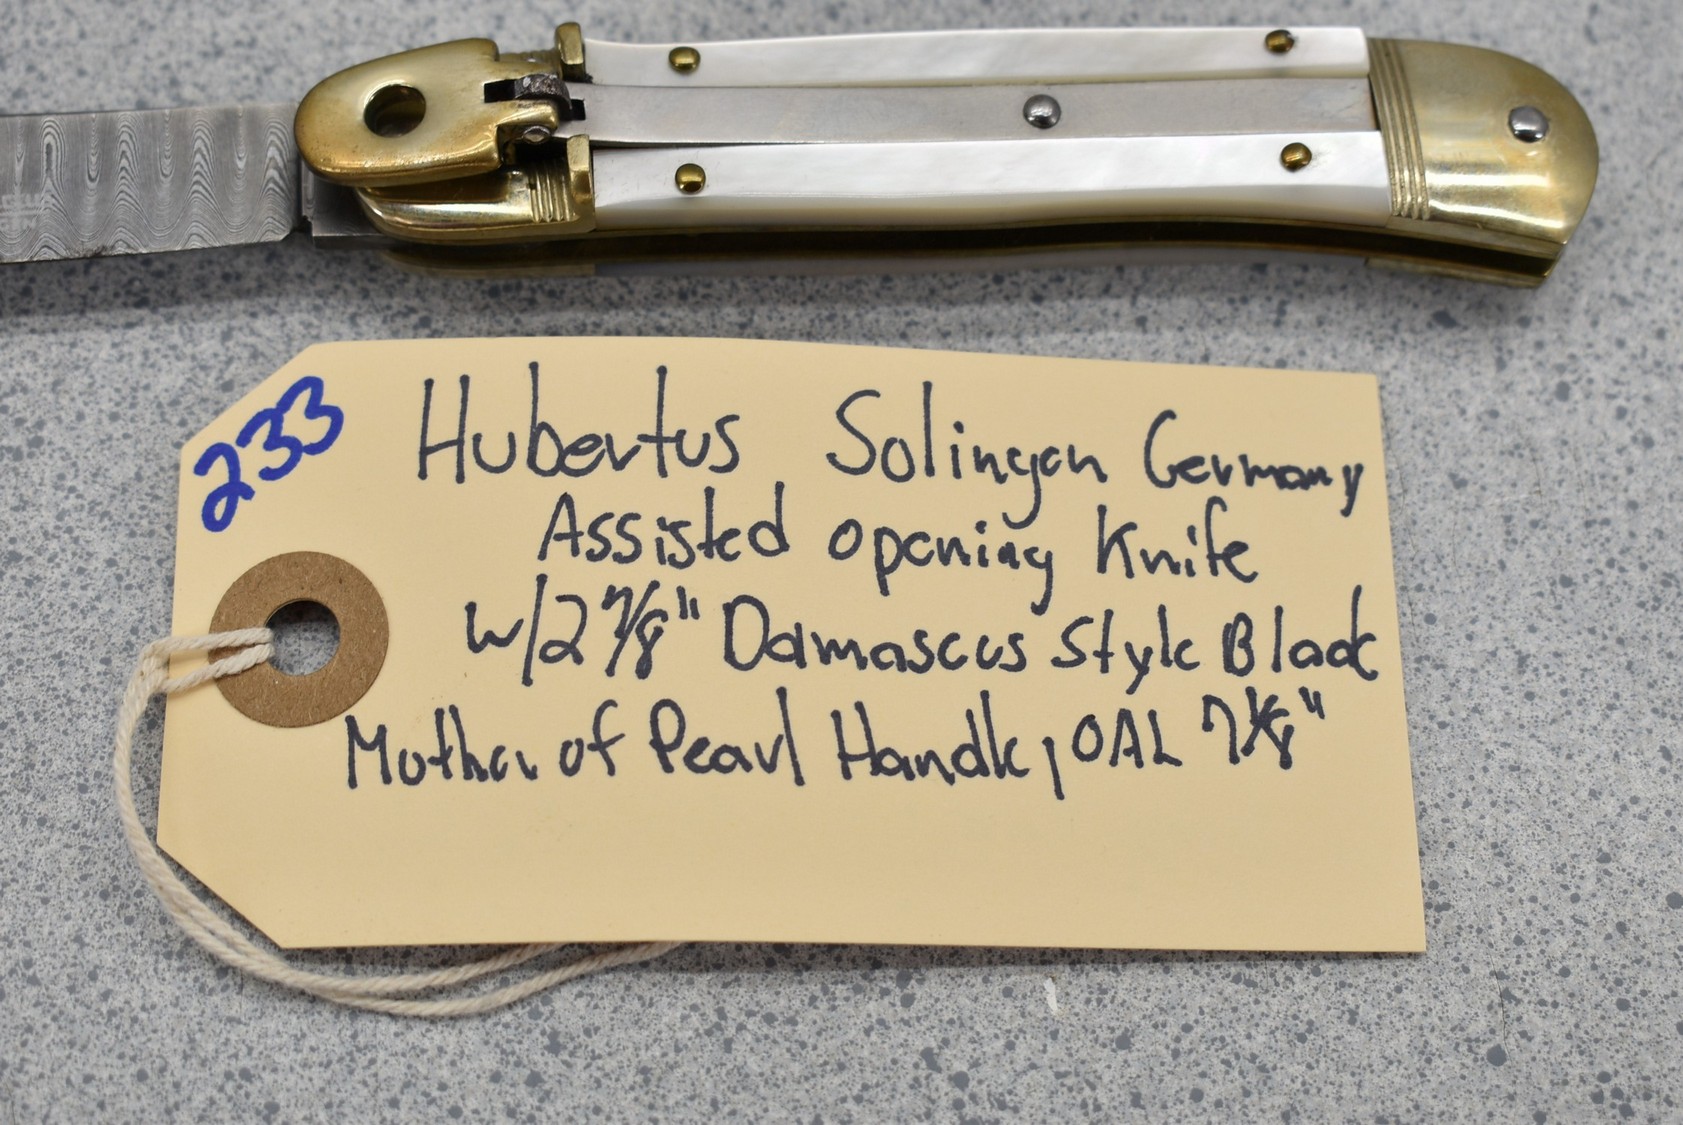 233
Hubertus Solingen Germany
Assisted opening Knife
w/2 7/8" Damascus Style Blade
Mother of Pearl Handle, OAL 7 1/8"